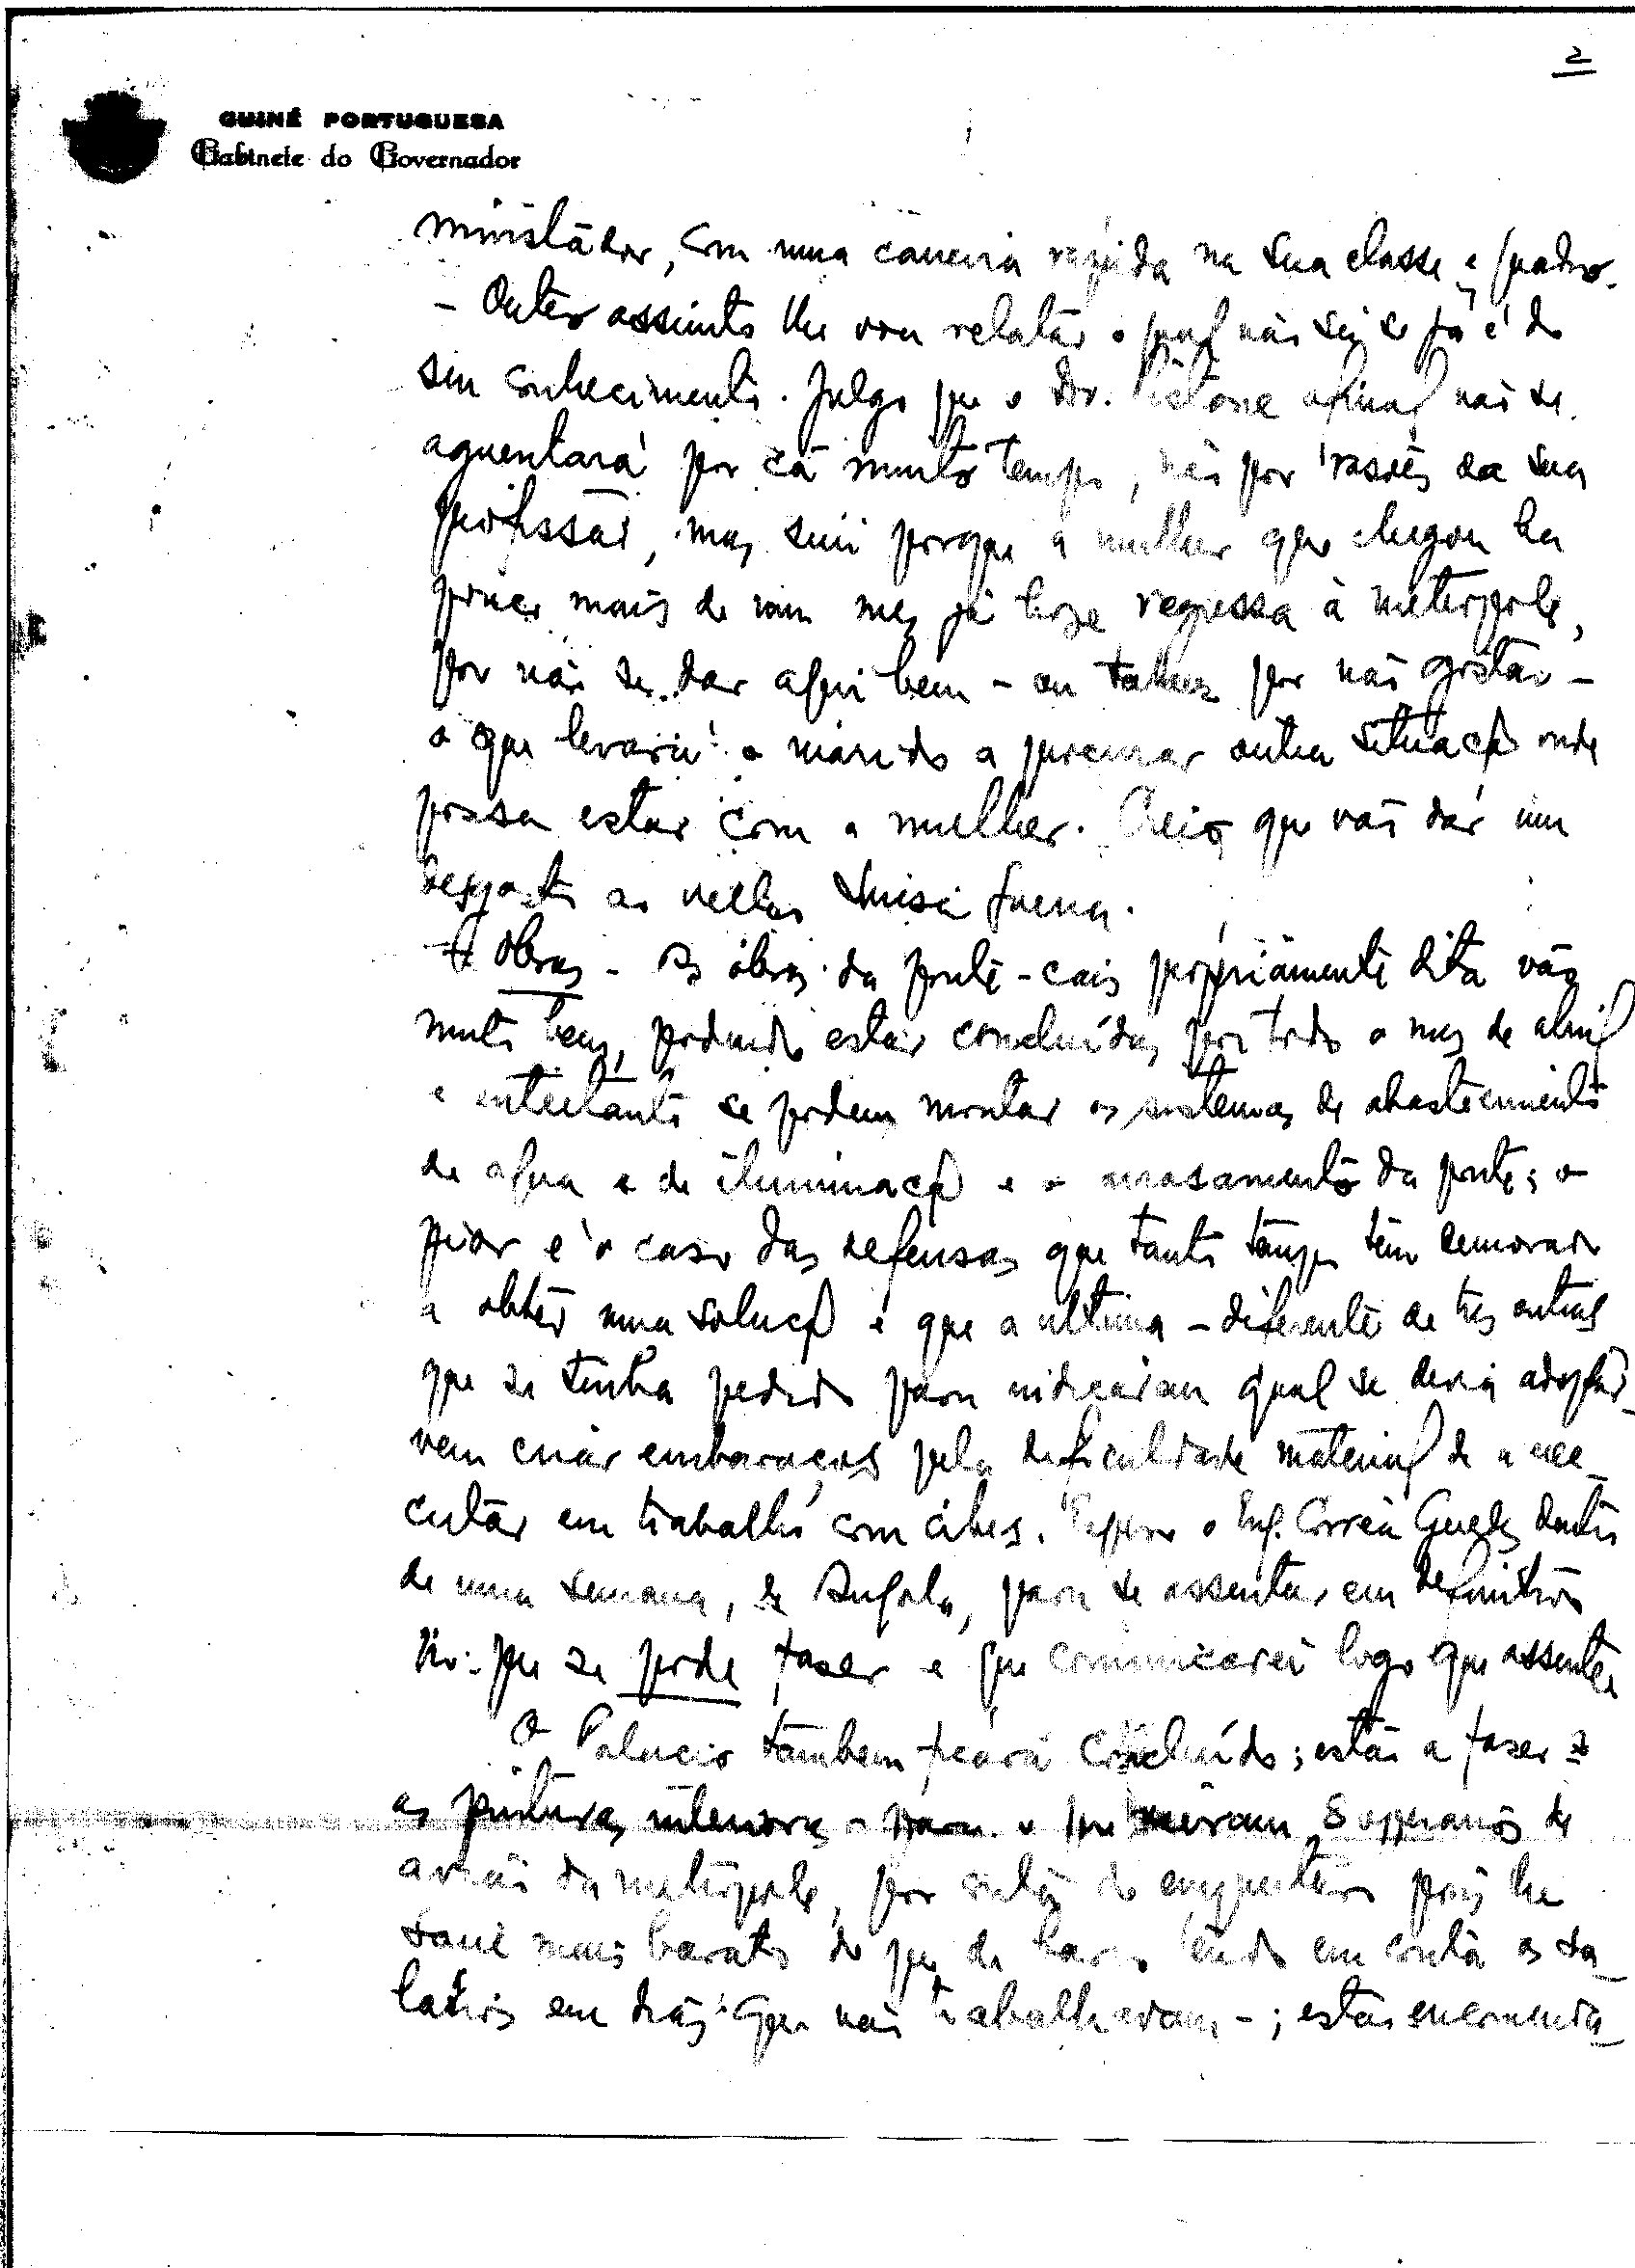 2
GUINÉ PORTUGUESA
Gabinete do Governador
ministrador, com uma carreira rápida na sua classe e quadro.
- Outro assunto lhe vou relatar o qual não sei se já é do
seu conhecimento. Julgo que o Dor. afinal não se
aguentará por cá muito tempo, não por rasões da sua
profissão, mas sim porque a mulher que chegou ha
pouco mais de um mez já hoje regressa à metropole,
por não se dar aqui bem - ou talvez por não gostar -
o que levará o marido a procurar outra situação onde
possa estar com a mulher. Creio que vai dar um
desgosto ao velho
Obras - As obras da ponte-cais propriamente dita vão
muito bem, podendo estar concluídas por todo o mez de abril
e entretanto se podem montar os sistemas de abastecimento
de agua e de iluminação e o arrasamento da ponte; o
pior é o caso das defensas que tanto tempo tem demorado
a obter uma solução e que a ultima - diferente de tres outras
que se tinha pedido para indicarem qual se devia adoptar -
vem criar embaraços pela dificuldade material de a exe-
cutar em trabalho com cibes. Espero o Eng. Corrêa Guedes dentro
de uma semana, de Angola, para se assentar em definitivo
no que se pode fazer e que comunicarei logo que assente
O Palacio tambem ficará concluído; estão a fazer-se
as pinturas interiores - para o que vieram 8 operarios de
avião da metropole, por conta do empreiteiro pois lhe
saia mais barato do que de barco tendo em conta os sa-
larios em dias que não trabalhavam -; estão encomenda-